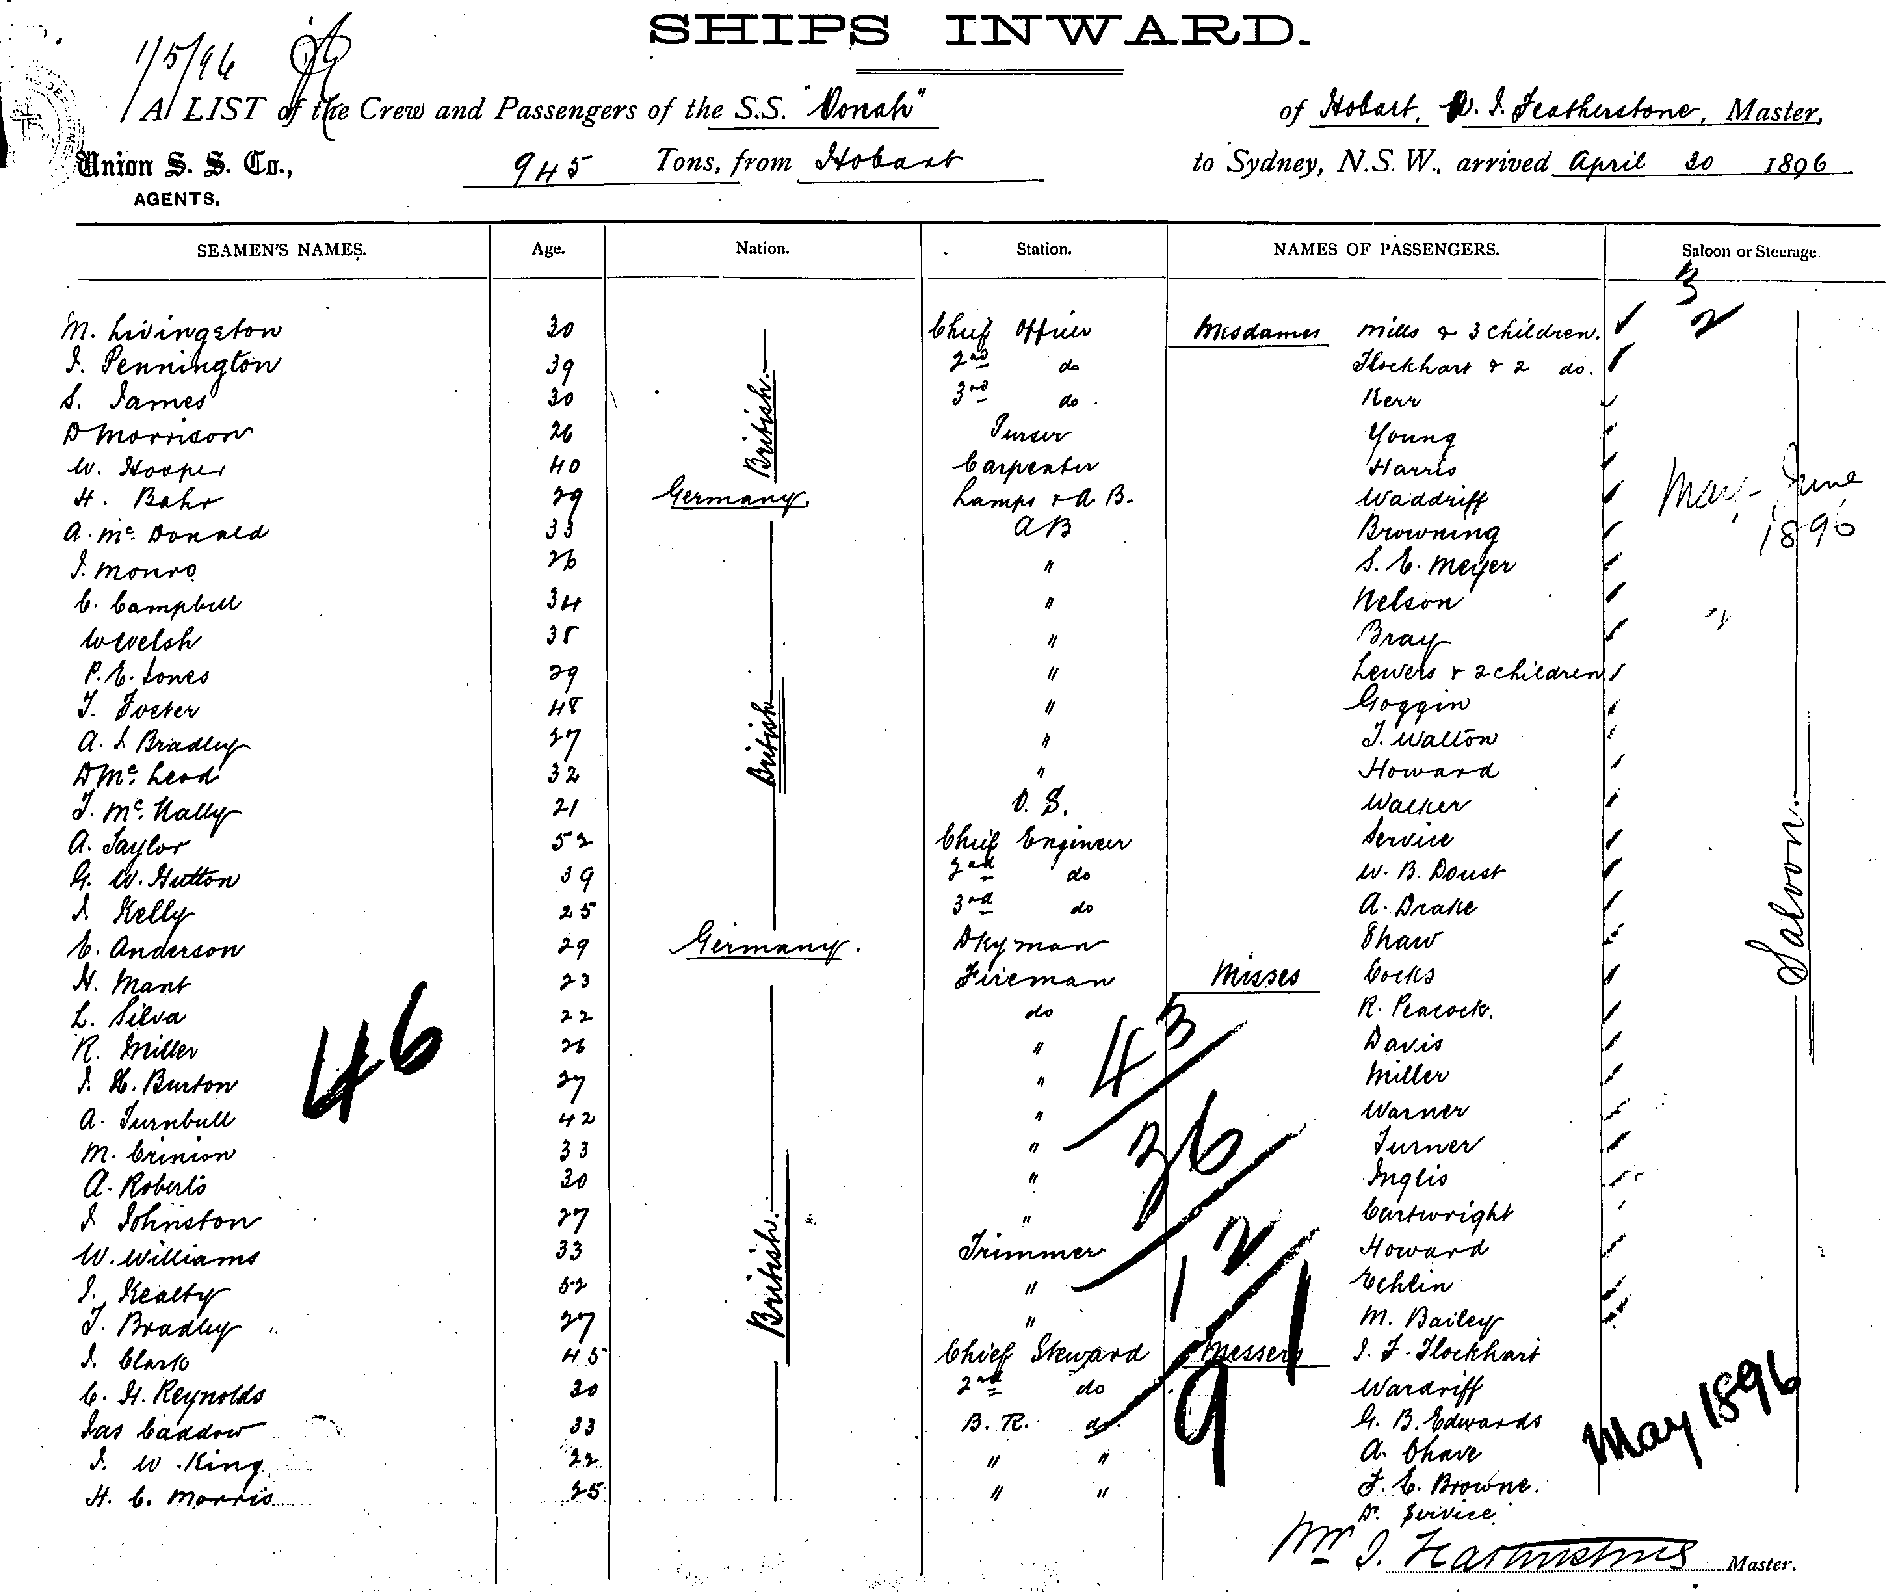 SHIPS INWARD.
1/5/96
A LIST of the Crew and Passengers of the S.S. "Oonah" of Hobart, W. J. Featherstone, Master,
Union S. S. Co., AGENTS. 945 Tons, from Hobart to Sydney, N.S.W., arrived April 30 1896
SEAMEN'S NAMES. Age. Nation. Station. NAMES OF PASSENGERS. Saloon or Steerage
3
M. Livingston 30 British. Chief Officer Mesdames Mills & 3 children. 2
J. Pennington 39 2nd do Flockhart & 2 do.
S. James 30 3rd do. Kerr
D Morrison 26 Purser Young
W. Hooper 40 Carpenter Harris
H. Bahr 29 Germany. Lamps & A B. Waddriff May-June
A. McDonald 33 AB Browning 1896
J. Monro 26 " S. E. Meyer
C. Campbell 34 " Nelson
W Welsh 35 " Bray
P. E. Jones 29 " Lewers & 2 children
T. Foster 48 British " Goggin
A. J Bradley 27 " J. Walton
D McLeod 32 " Howard
T. McNally 21 O. S. Walker
A. Taylor 52 Chief Engineer Service
G. W. Hutton 39 2nd do W. B. Doust
J Kelly 25 3rd do A. Drake Saloon.
E. Anderson 29 Germany. Dkyman Shaw
H. Mant 23 Fireman Misses Cocks
L. Silva 22 do R. Peacock.
R. Miller 26 " Davis
46
43
J. H. Burton 27 " Miller
A. Turnbull 42 " Warner
M. Crinion 33 " Turner
36
A. Roberts 30 " Inglis
J Johnston 27 British. " Cartwright
W. Williams 33 Trimmer Howard
12
J. Kealty 52 " Echlin
T. Bradley 27 " M. Bailey
J. Clark 45 Chief Steward Messers J. F. Flockhart
91
C. H. Reynolds 30 2nd do Wardriff
Jas Caddow 33 B. R. do G. B. Edwards May 1896
J. W. King 22 " " A. Shave
H. C. Morris 25 " " F. E. Browne.
D. Service.
Wm J. Featherstone Master.